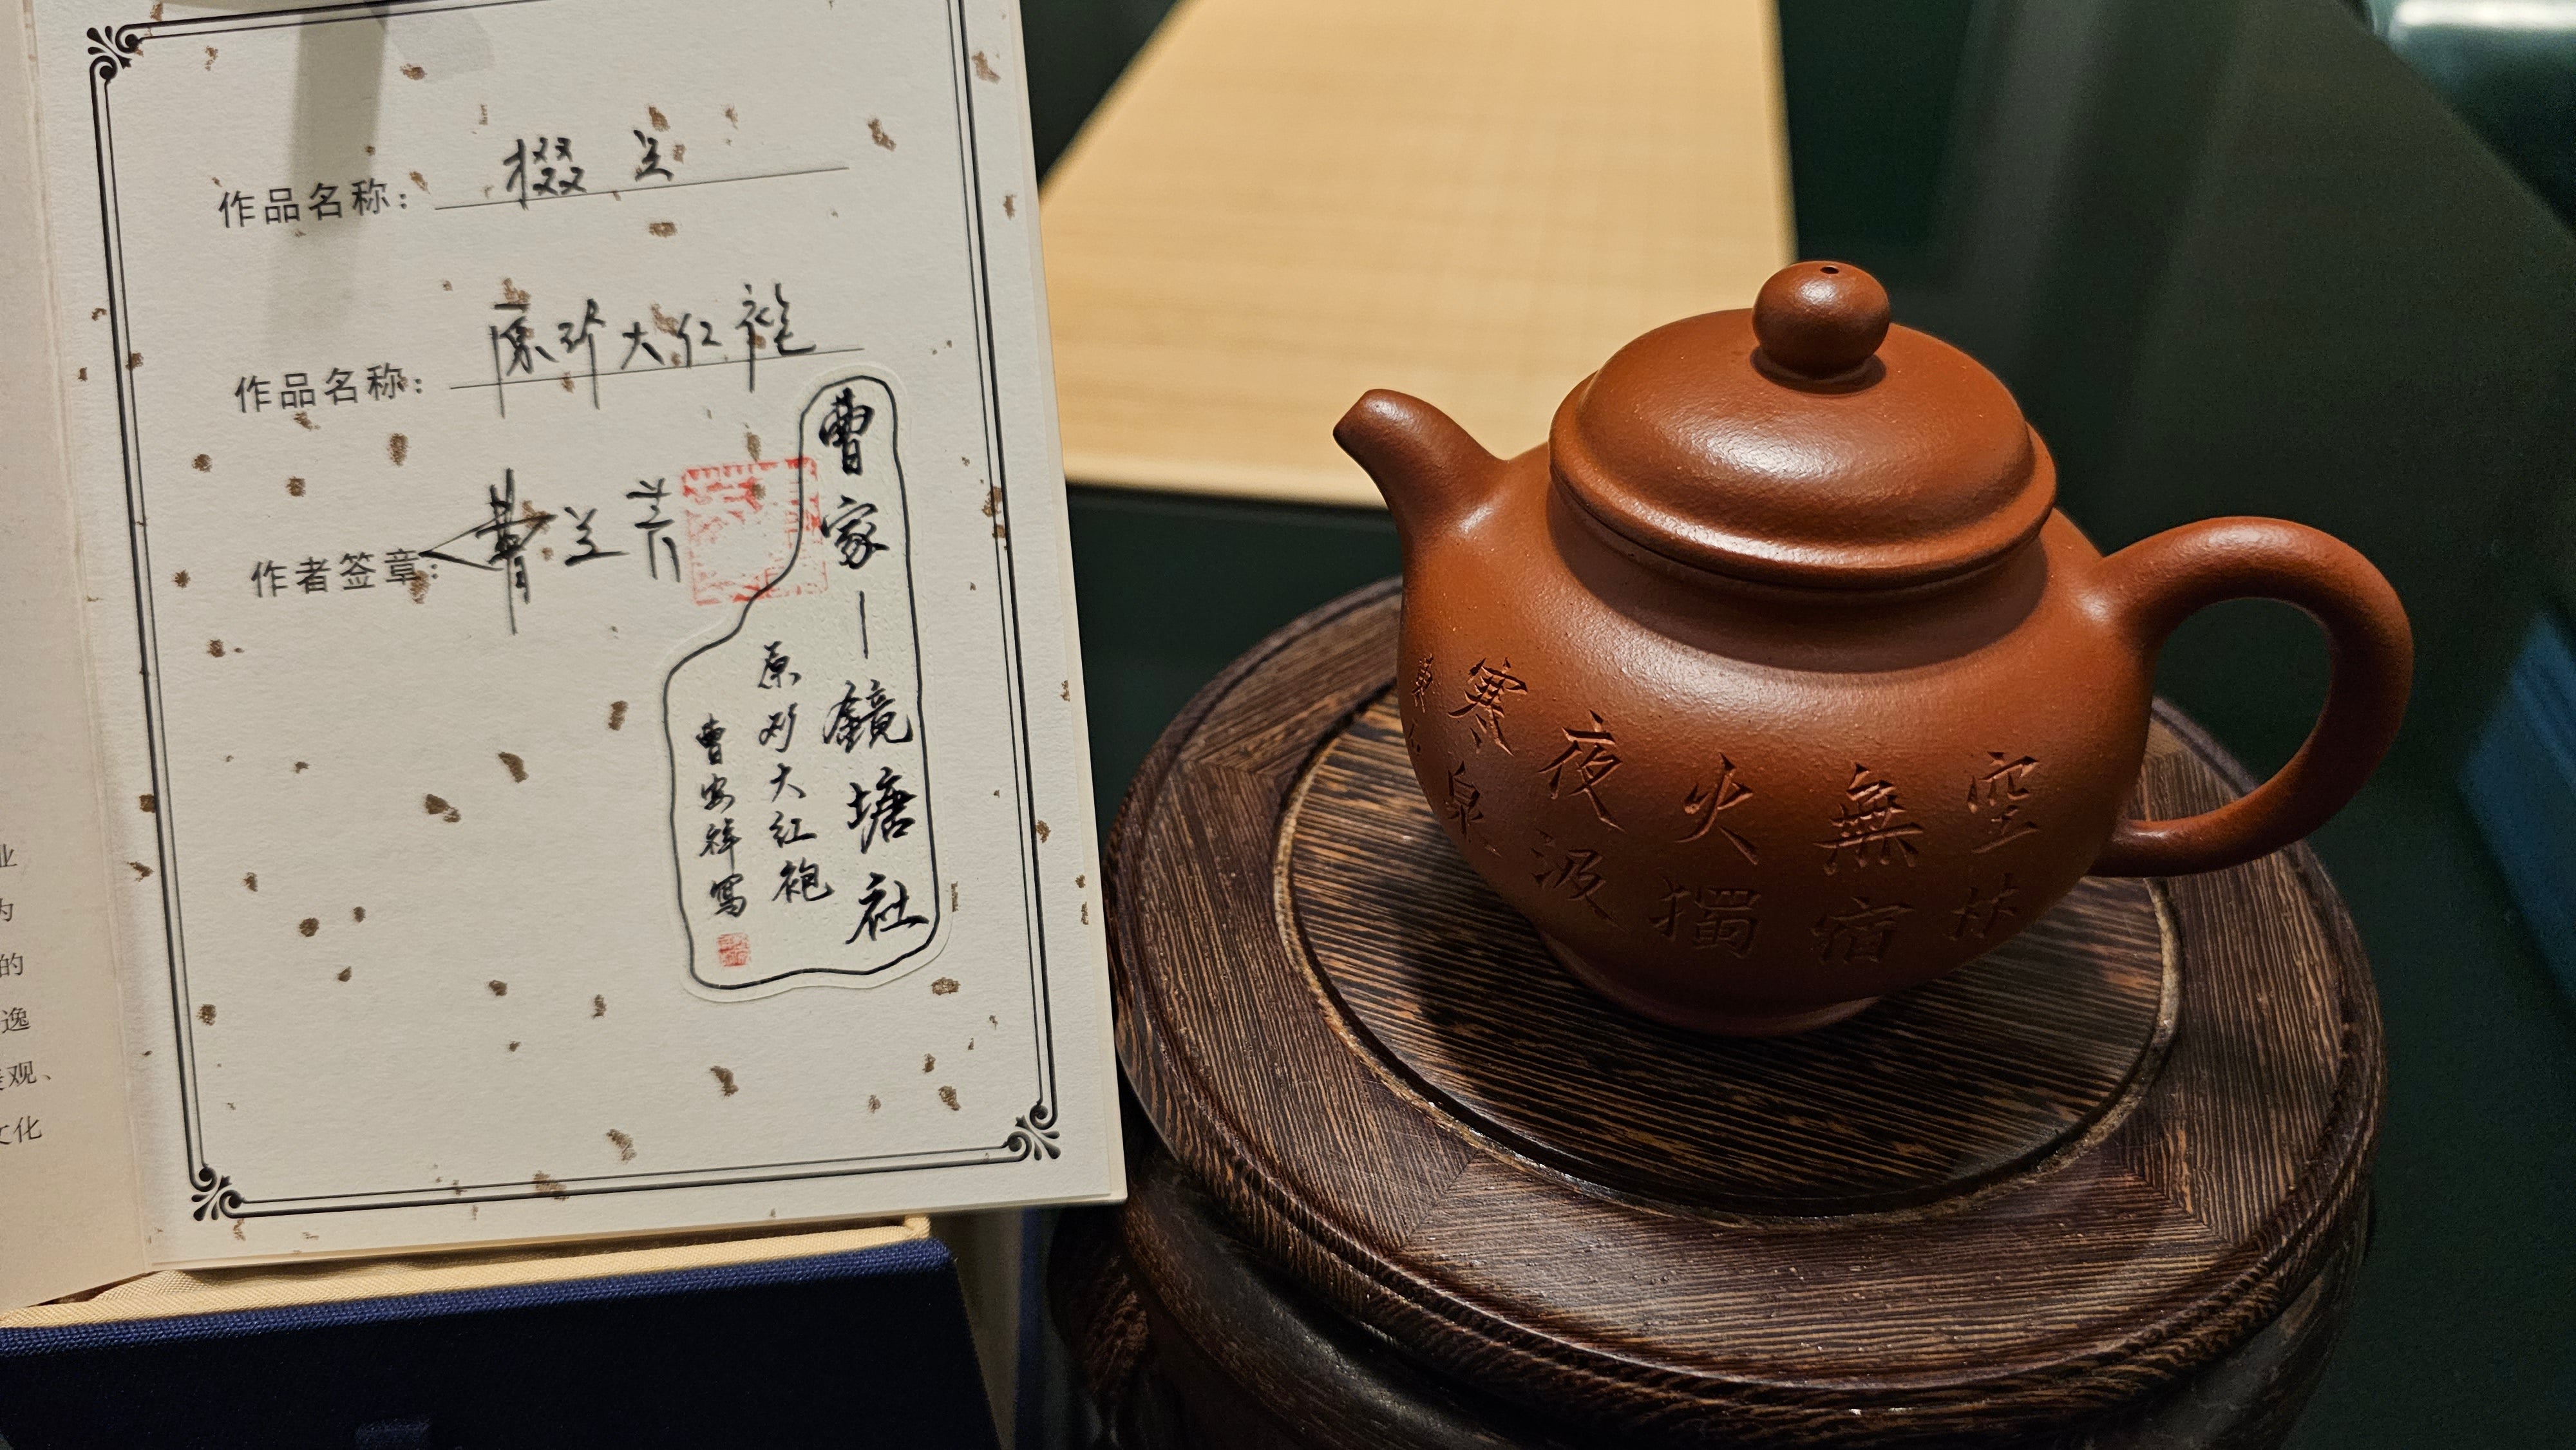 作品名称：掇 英
作品名称：原矿大红袍
作者签章：费兰芳
曹家-镜塘社
原矿大红袍
曹安祥寫
空林
無宿
火獨
夜汲
寒泉
业
为
的
逸
观、
文化